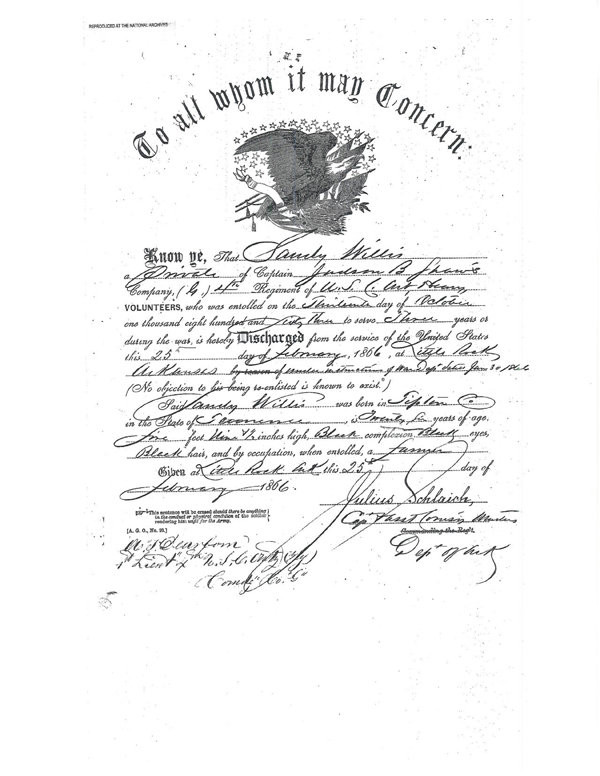 REPRODUCED AT THE NATIONAL ARCHIVES
To all whom it may Concern:
Know ye, That Sandy Willis
a Private of Captain Judson B Shaw's
Company, (G,) 4th Regiment of U.S.C. Art Heavy
VOLUNTEERS, who was enrolled on the day of October
one thousand eight hundred and Sixty Three to serve Three years or
during the war, is hereby Discharged from the service of the United States
this 25th day of February, 1866, at Little Rock
Arkansas by reason of under instructions of War Dept dated Jan 30 1866
(No objection to his being re-enlisted is known to exist.)
Said Sandy Willis was born in Tipton Co
in the State of Tennessee, is Twenty years of age,
five feet Nine ½ inches high, Black complexion, Black eyes,
Black hair, and by occupation, when enrolled, a Farmer
Given at Little Rock Ark this 25th day of
February 1866.
Julius Schlaich,
☞This sentence will be erased should there be anything
in the conduct or physical condition of the soldier
rendering him unfit for the Army.
Capt Asst Comsy Musters
Commanding the Reg't.
[A. G. O., No. 99.]
Dept of Ark
1st Lieut 4th U.S.C. Arty (Hy)
Comdg Co. "G"